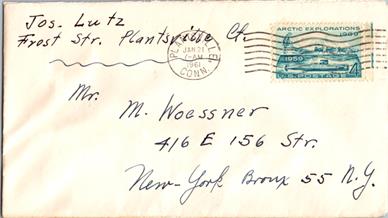 Jos. Lutz
Frost Str. Plantsville Ct.
PLANTSVILLE
JAN 21
-AM
1961
CONN.
ARCTIC EXPLORATIONS
1909
1959
U.S. POSTAGE
4¢
Mr. M. Woessner
416 E 156 Str.
New-York Bronx 55 N.Y.